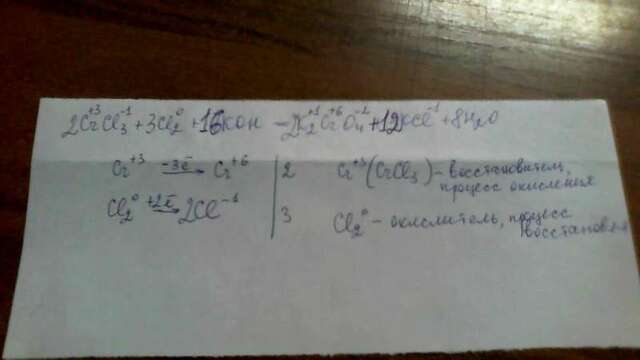 2Cr⁺³Cl₃⁻¹ + 3Cl₂⁰ + 16KOH – 2K₂⁺¹Cr⁺⁶O₄⁻² + 12KCl⁻¹ + 8H₂O
Cr⁺³ –3ē→ Cr⁺⁶ | 2 Cr⁺³(CrCl₃) – восстановитель,
процесс окисления
Cl₂⁰ +2ē→ 2Cl⁻¹ | 3 Cl₂⁰ – окислитель, процесс